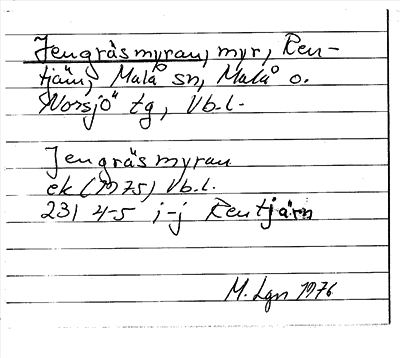 Jengräsmyran, myr, Ren-
tjäin, Malå sn, Malå o.
Norsjö tg, Vb.l.
Jengräsmyran
ek (1975) Vb.l.
231 4-5 i-j Rentjärn
M. Lgn 1976